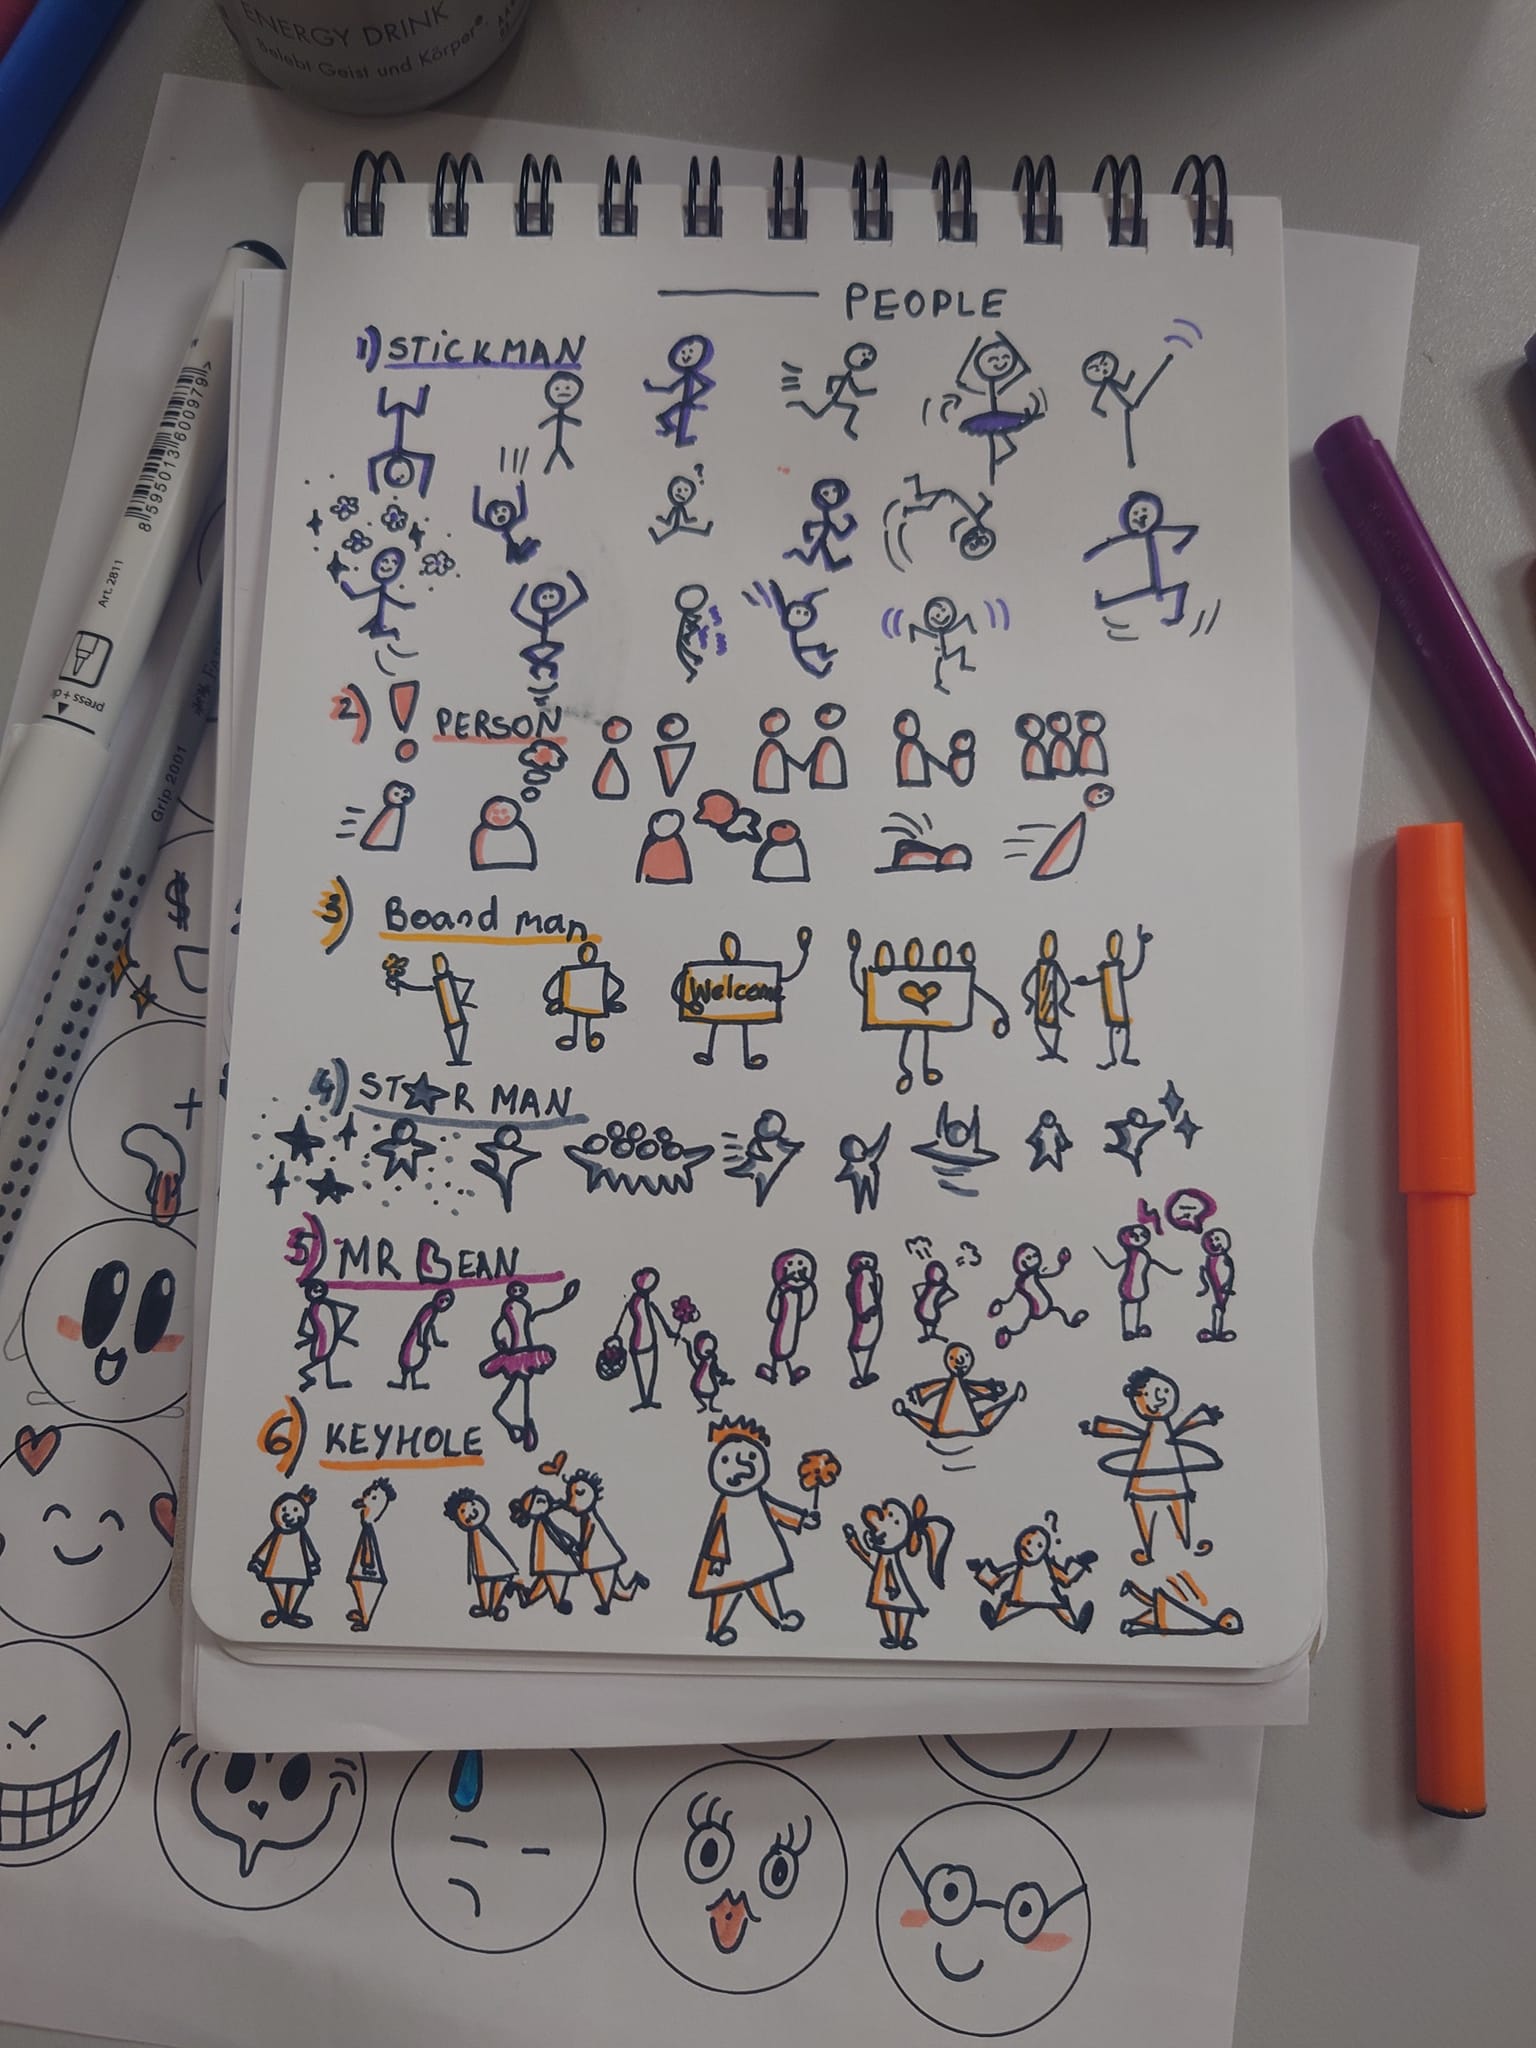 ENERGY DRINK
Belebt Geist und Körper®
PEOPLE
1) STICKMAN
?
2) ! PERSON
3) Board man
Welcome
4) ST★R MAN
5) MR BEAN
6) KEYHOLE
?
8595013600979>
Art. 2811
press +
Grip 2001
$
+